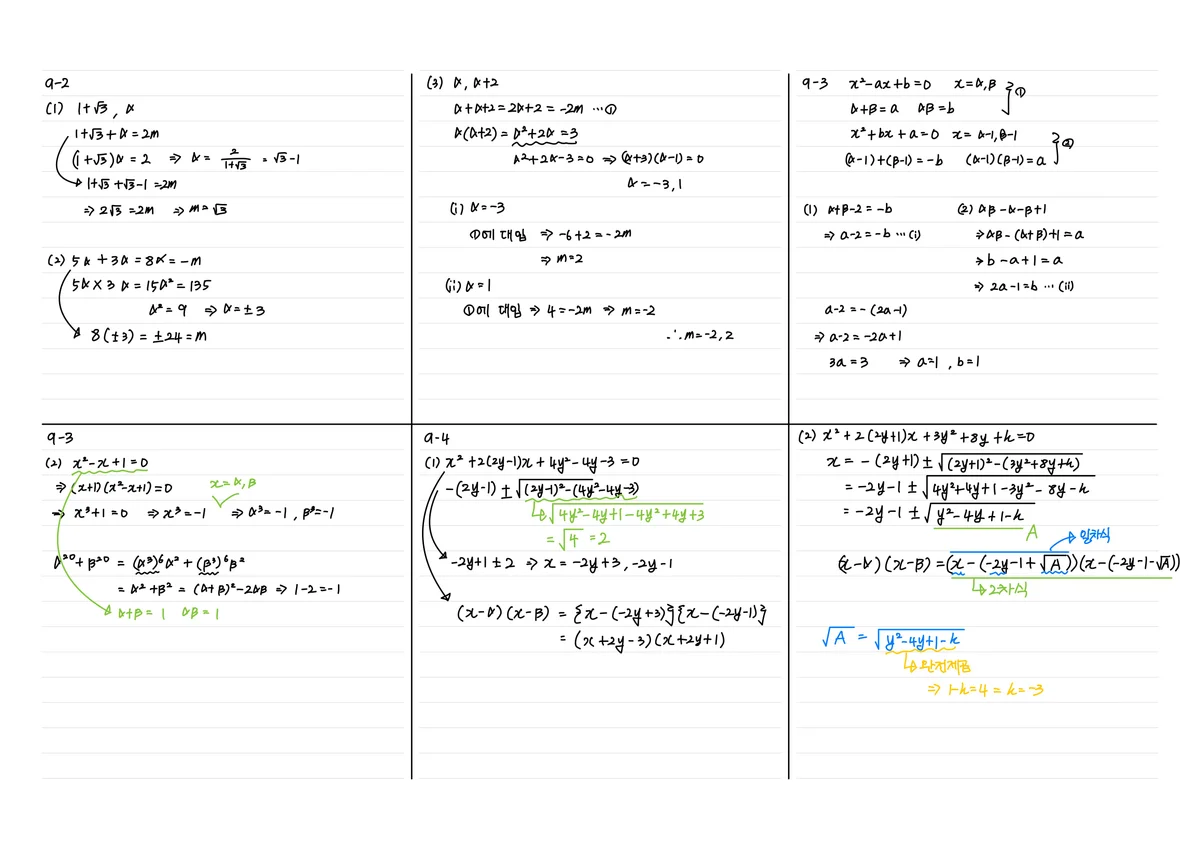 9-2
(1) 1+√3, α
1+√3+α=2m
(1+√3)α=2 ⇒ α= 2/(1+√3) = √3-1
1+√3+√3-1=2m
⇒ 2√3=2m ⇒ m=√3
(2) 5α+3α=8α=-m
5α×3α=15α²=135
α²=9 ⇒ α=±3
8(±3)=±24=m
(3) α, α+2
α+α+2=2α+2=-2m …①
α(α+2)=α²+2α=3
α²+2α-3=0 ⇒ (α+3)(α-1)=0
α=-3,1
(i) α=-3
①에 대입 ⇒ -6+2=-2m
⇒ m=2
(ii) α=1
①에 대입 ⇒ 4=-2m ⇒ m=-2
∴m=-2,2
9-3 x²-ax+b=0 x=α,β
α+β=a αβ=b ①
x²+bx+a=0 x=α-1,β-1
(α-1)+(β-1)=-b (α-1)(β-1)=a ②
(1) α+β-2=-b
⇒ a-2=-b …(i)
(2) αβ-α-β+1
⇒ αβ-(α+β)+1=a
⇒ b-a+1=a
⇒ 2a-1=b …(ii)
a-2=-(2a-1)
⇒ a-2=-2a+1
3a=3 ⇒ a=1, b=1
9-3
(2) x²-x+1=0
⇒ (x+1)(x²-x+1)=0 x=α,β
⇒ x³+1=0 ⇒ x³=-1 ⇒ α³=-1, β³=-1
α²⁰+β²⁰ = (α³)⁶α²+(β³)⁶β²
= α²+β² = (α+β)²-2αβ ⇒ 1-2=-1
α+β=1 αβ=1
9-4
(1) x²+2(2y-1)x+4y²-4y-3=0
-(2y-1)±√((2y-1)²-(4y²-4y-3))
√(4y²-4y+1-4y²+4y+3)
=√4=2
-2y+1±2 ⇒ x=-2y+3, -2y-1
(x-α)(x-β) = {x-(-2y+3)}{x-(-2y-1)}
= (x+2y-3)(x+2y+1)
(2) x²+2(2y+1)x+3y²+8y+k=0
x = -(2y+1)±√((2y+1)²-(3y²+8y+k))
= -2y-1±√(4y²+4y+1-3y²-8y-k)
= -2y-1±√(y²-4y+1-k)
A
일차식
(x-α)(x-β)=(x-(-2y-1+√A))(x-(-2y-1-√A))
2차식
√A = √(y²-4y+1-k)
완전제곱
⇒ 1-k=4 = k=-3